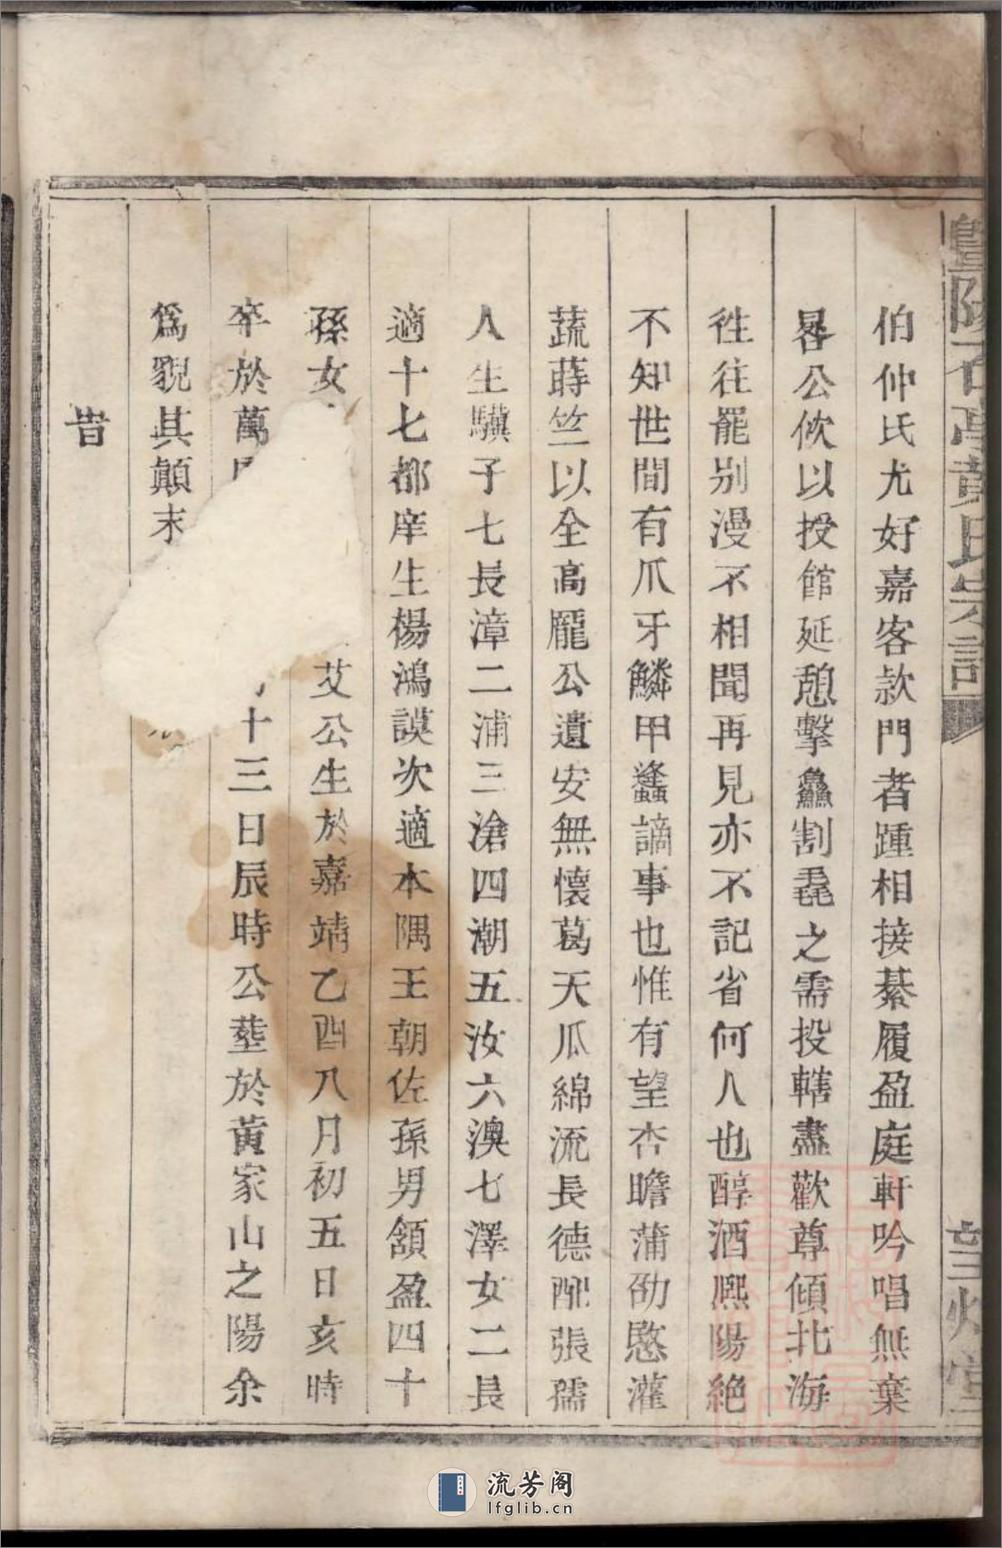 暨陽石亭黃氏宗譜
伯仲氏尤好嘉客款門者踵相接綦履盈庭軒吟唱無棄
晷公攸以投館延憩擊鱻割毳之需投轄盡歡尊傾北海
徃往罷別漫不相聞再見亦不記省何人也醇酒熙陽絶
不知世間有爪牙鱗甲蠭謫事也惟有望杏瞻蒲劭愍灌
蔬蒔竺以全高龐公遺安無懷葛天瓜綿流長德配張孺
人生驥子七長漳二浦三滄四潮五汝六澳七澤女二長
適十七都庠生楊鴻謨次適本隅王朝佐孫男頷盈四十
孫女
艾公生於嘉靖乙酉八月初五日亥時
卒於萬
十三日辰時公塟於黃家山之陽余
爲貌其顛末
旹
流芳阁
lfglib.cn